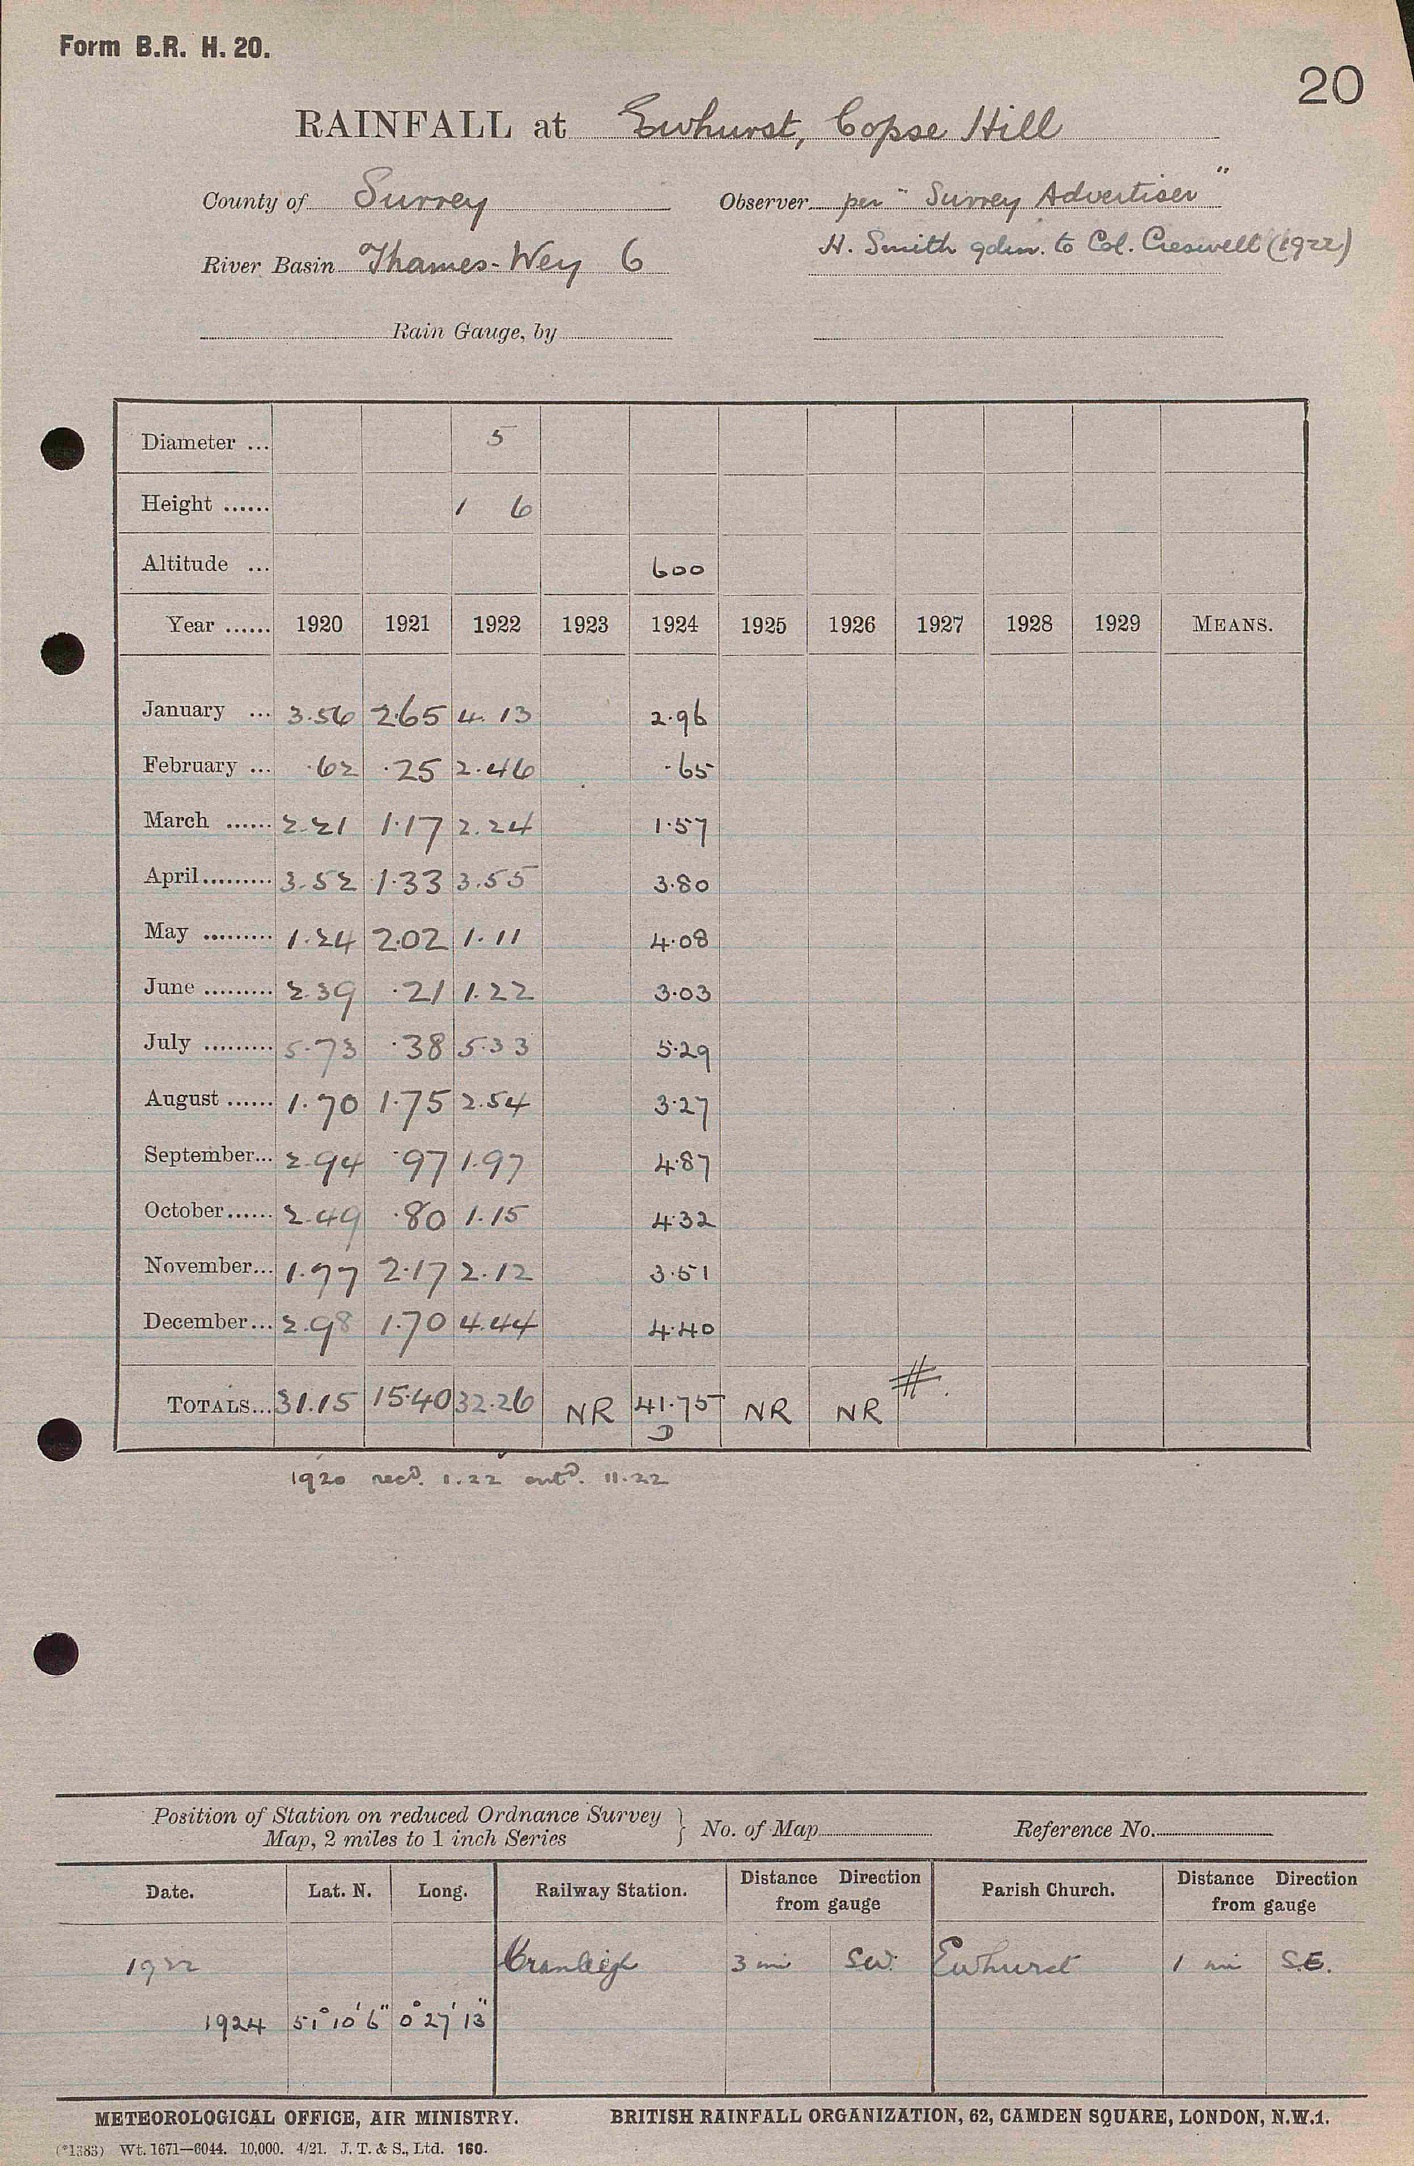 Form B.R. H. 20.
20
RAINFALL at Ewhurst, Copse Hill
County of Surrey Observer per "Surrey Advertiser"
River Basin Thames-Wey 6 H. Smith gdnr. to Col. Creswell (1922)
Rain Gauge, by
Diameter ... 5
Height ...... 1 6
Altitude ... 600
Year ...... 1920 1921 1922 1923 1924 1925 1926 1927 1928 1929 MEANS.
January ... 3.56 2.65 4.13 2.96
February ... .62 .25 2.46 .65
March ...... 2.21 1.17 2.24 1.57
April......... 3.52 1.33 3.55 3.80
May ......... 1.24 2.02 1.11 4.08
June ......... 2.39 .21 1.22 3.03
July ......... 5.73 .38 5.33 5.29
August ...... 1.70 1.75 2.54 3.27
September... 2.94 .97 1.97 4.87
October...... 2.49 .80 1.15 4.32
November... 1.77 2.17 2.12 3.51
December... 2.98 1.70 4.44 4.40
TOTALS... 31.15 15.40 32.26 NR 41.75 NR NR #.
D
1920 recd. 1.22 entd. 11.22
Position of Station on reduced Ordnance Survey Map, 2 miles to 1 inch Series } No. of Map Reference No.
Date. Lat. N. Long. Railway Station. Distance Direction from gauge Parish Church. Distance Direction from gauge
1922 Cranleigh 3 mi SW. Ewhurst 1 mi S.E.
1924 51° 10' 6" 0° 27' 13"
METEOROLOGICAL OFFICE, AIR MINISTRY. BRITISH RAINFALL ORGANIZATION, 62, CAMDEN SQUARE, LONDON, N.W.1.
(*1383) Wt. 1671—6044. 10,000. 4/21. J. T. & S., Ltd. 160.